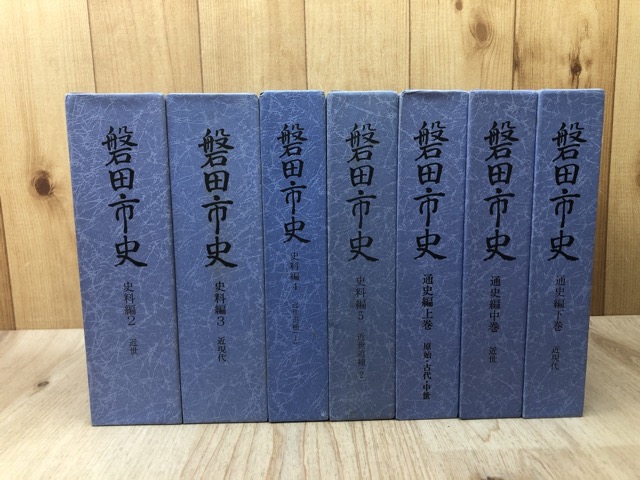 磐田市史
史料編2 近世
磐田市史
史料編3 近現代
磐田市史
史料編4 近世追補(1)
磐田市史
史料編5 近世追補(2)
磐田市史
通史編上巻 原始・古代・中世
磐田市史
通史編中巻 近世
磐田市史
通史編下巻 近現代